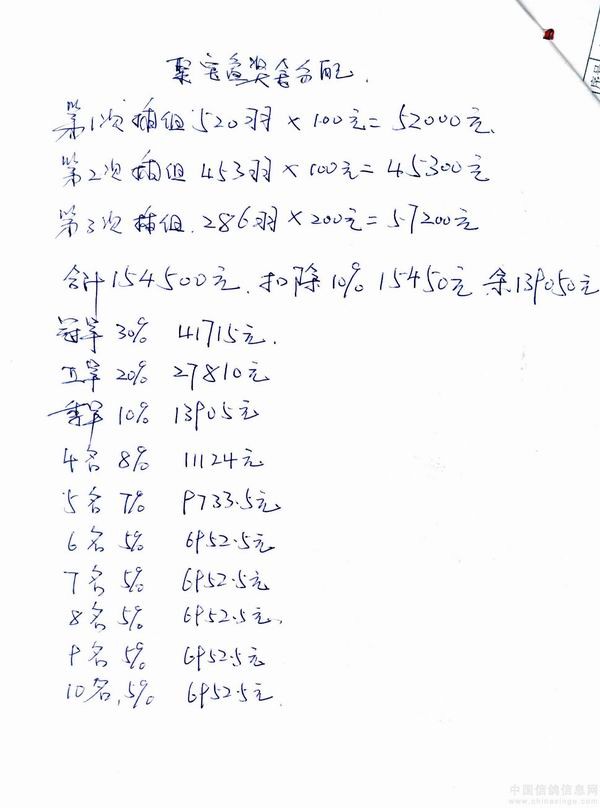 聚宝盆奖金分配.
第1次插组 520羽×100元=52000元.
第2次插组 453羽×100元=45300元
第3次插组.286羽×200元=57200元
合计154500元.扣除10% 15450元 余139050元
冠军 30% 41715元.
亚军 20% 27810元
季军 10% 13905元
4名 8% 11124元
5名 7% 9733.5元
6名 5% 6952.5元
7名 5% 6952.5元
8名 5% 6952.5元.
9名 5% 6952.5元
10名.5% 6952.5元.
序号
中国信鸽信息网
www.chinaxinge.com